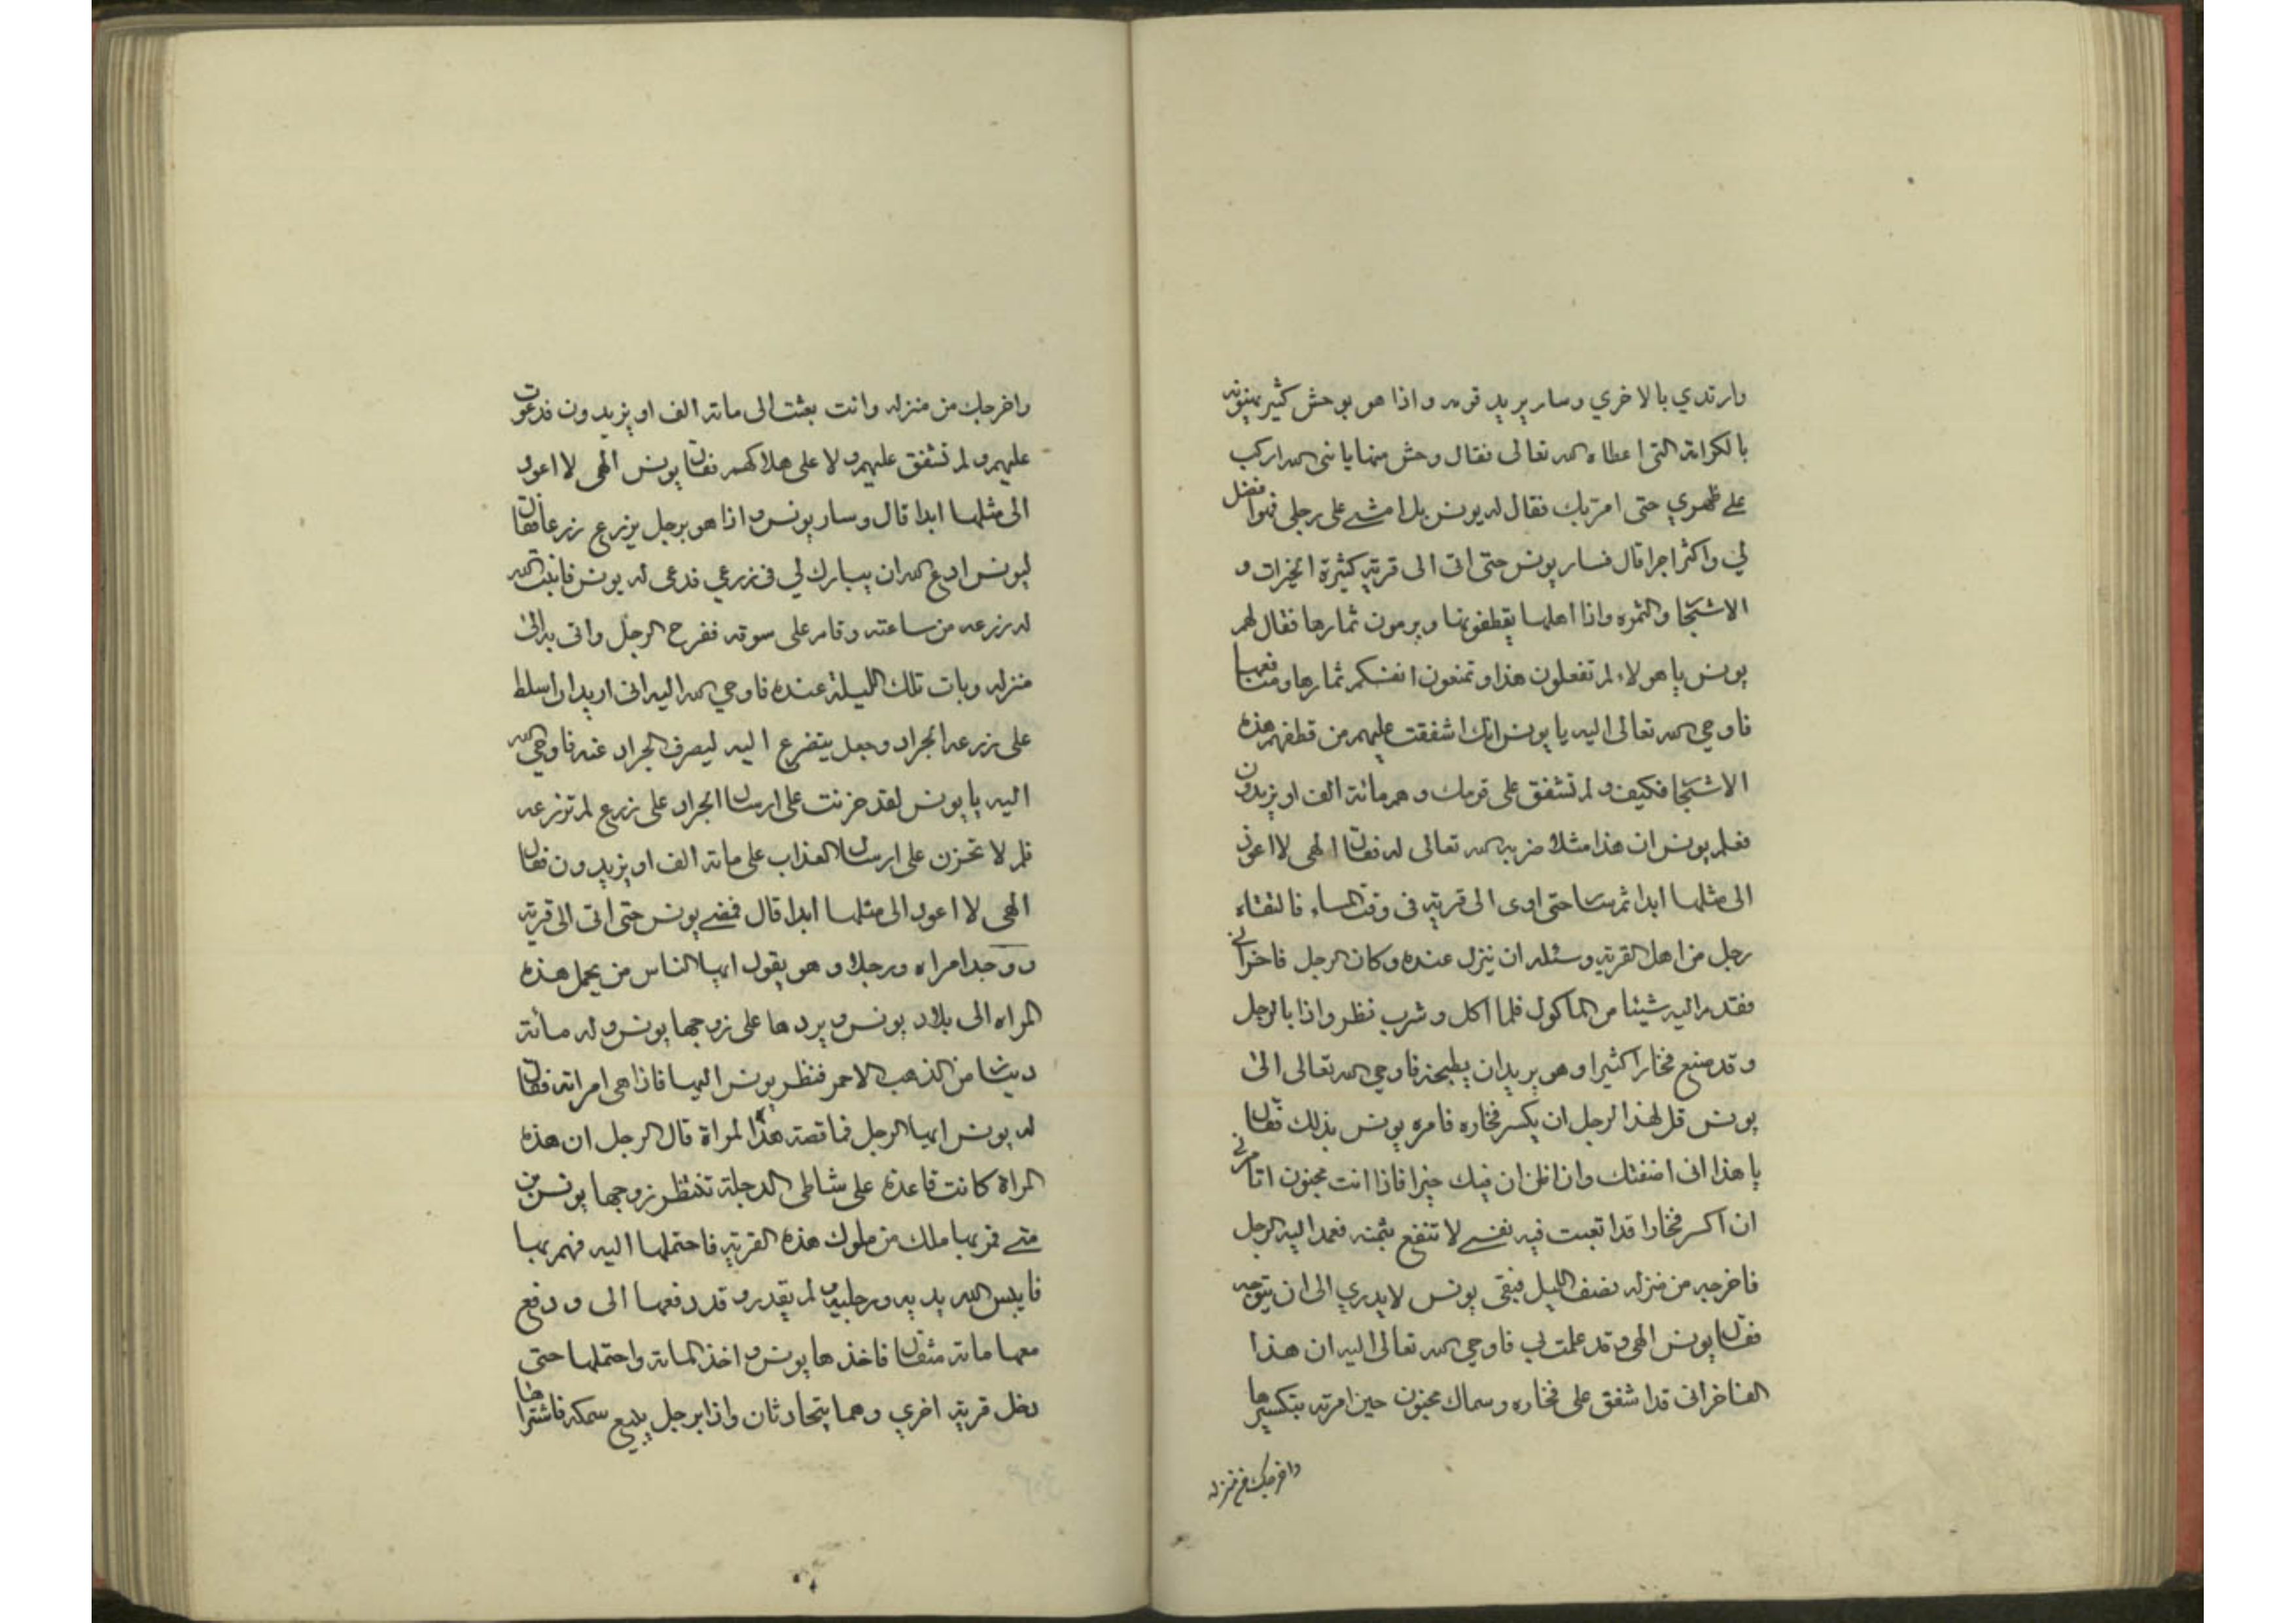 وارتدي بالاخري وسار يريد قومه واذا هو بوحش كثير يهنونه
بالكرامة التى اعطاه الله تعالى فقال وحش منها يا نبى الله اركب
على ظهري حتى امر بك فقال له يونس بل امشى على رجلى فهوا فضل
لي واكثر اجرا قال فسار يونس حتى اتى الى قرية كثيرة الخيرات و
الاشجار والثمره واذا اهلها يقطفونها ويرمون ثمارها فقال لهم
يونس يا هولاء لم تفعلون هذا وتمنعون انفسكم ثمارها ومنافعها
فاوحي الله تعالى اليه يا يونس انك اشفقت عليهم من قطفهم هذه
الاشجار فكيف ولم تشفق على قومك وهم مائة الف او يزيدون
فعلم يونس ان هذا مثلا ضربه الله تعالى له فقال الهى لا اعود
الى مثلها ابدا ثم سار حتى اوى الى قرية فى وقت المساء فالتقاه
رجل من اهل القرية وسئله ان ينزل عنده وكان الرجل فاخراني
فقدم اليه شيئا من الماكول فلما اكل وشرب نظر واذا بالرجل
وقد صنع فخارا كثيرا وهو يريدان يطبخه فاوحي الله تعالى الى
يونس قل لهذا الرجل ان يكسر فخاره فامره يونس بذلك فقال
يا هذا انى اضفتك وانا ظن ان فيك خيرا فاذا انت مجنون اتامرني
ان اكسر فخارا قد اتعبت فيه نفسى لا تنفع بثمنه فعمد اليه الرجل
فاخرجه من منزله نصف الليل فبقى يونس لا يدري الى ان يتوجه
فقال يونس الهى وقد علمت بي فاوحي الله تعالى اليه ان هذا
الفاخرانى قد اشفق على فخاره وسماك مجنون حين امرته بتكسيرها
واخرجك من منزله
واخرجك من منزله وانت بعثت الى مائة الف او يزيدون فدعوت
عليهم ولم تشفق عليهم ولا على هلاكهم فقال يونس الهى لا اعود
الى مثلها ابدا قال وسار يونس واذا هو برجل يزرع زرعا فقال
ليونس ادع الله ان يبارك لي فى زرعي فدعى له يونس فانبت الله
له زرعه من ساعته وقام على سوقه ففرح الرجل واتى به الى
منزله وبات تلك الليلة عنده فاوحي الله اليه انى اريد ان اسلط
على زرعه الجراد وجعل يتضرع اليه ليصرف الجراد عنه فاوحي الله
اليه يا يونس لقد حزنت على ارسال الجراد على زرع لم تزرعه
فلم لا تحزن على ارسال العذاب على مائة الف او يزيدون فقال
الهى لا اعود الى مثلها ابدا قال فمضى يونس حتى اتى الى قرية
ووجد امراه ورجلا وهو يقول ايها الناس من يحمل هذه
المراه الى بلاد يونس ويردها على زوجها يونس وله مائة
دينار من الذهب الاحمر فنظر يونس اليها فاذا هى امراته فقال
له يونس ايها الرجل فما قصة هذه المراة قال الرجل ان هذه
المراة كانت قاعدة على شاطى الدجلة تنتظر زوجها يونس بن
متى فمر بها ملك من ملوك هذه القرية فاحتملها اليه فهم بها
فايبس الله يديه ورجليه ولم يقدر وقد دفعها الى ودفع
معها مائة مثقال فاخذها يونس واخذ المائة واحتملها حتى
دخل قرية اخري وهما يتحادثان واذا برجل يبيع سمكه فاشتراها